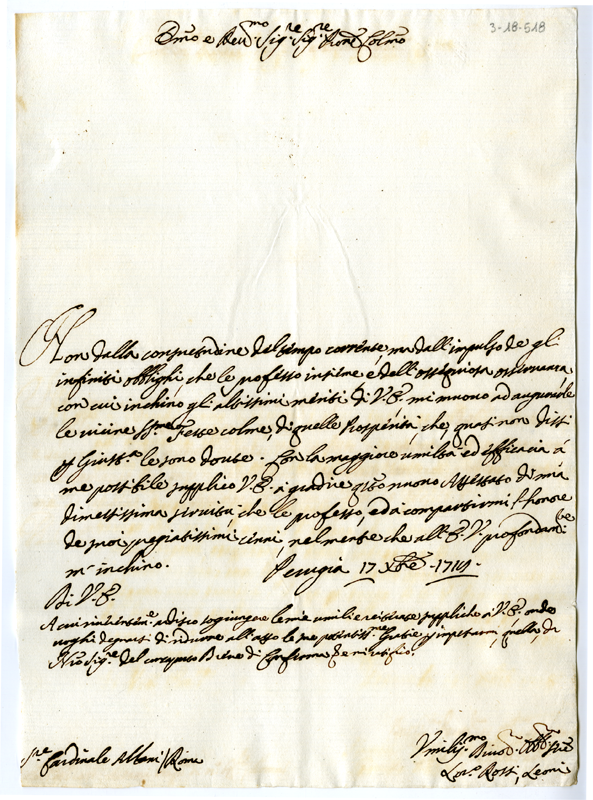 3-18-518
Em̃o e Rev.mo Sig.re Sig.re Prone Colmo
Non dalla consuetudine del tempo corrente, ma dall'impulso de gli
infiniti oblighi che le professo insieme e dell'ossequiosa osservanza
con cui inchino gli altissimi meriti di V.E. mi muovo ad augurarle
le vicine SS.me Feste colme, di quelle Prosperità, che, quasi non dissi
p Giust.a le sono dovute. Con la maggiore umiltà ed efficacia à
me possibile supplico V.E. à gradire questo nuovo Attestato di mia
dimessissima servitù, che le professo, ed a compartirmi l'honore
de suoi pregiatissimi cenni, nel mentre che all'E.V. profondam.te
m'inchino. Perugia 17 Xbre 1719.
Di V.E.
A cui riverentem.e ardisco sogiungere le mie umili e suppliche à V.E. onde
voglia degnarsi di ridurre all'atto le sue Gratie p impetrarmi da
N'ro Sig.re del Bene di
Sig.re Cardinale Albani / Roma
Umiliss.mo
Lor.o Rossi Leoni